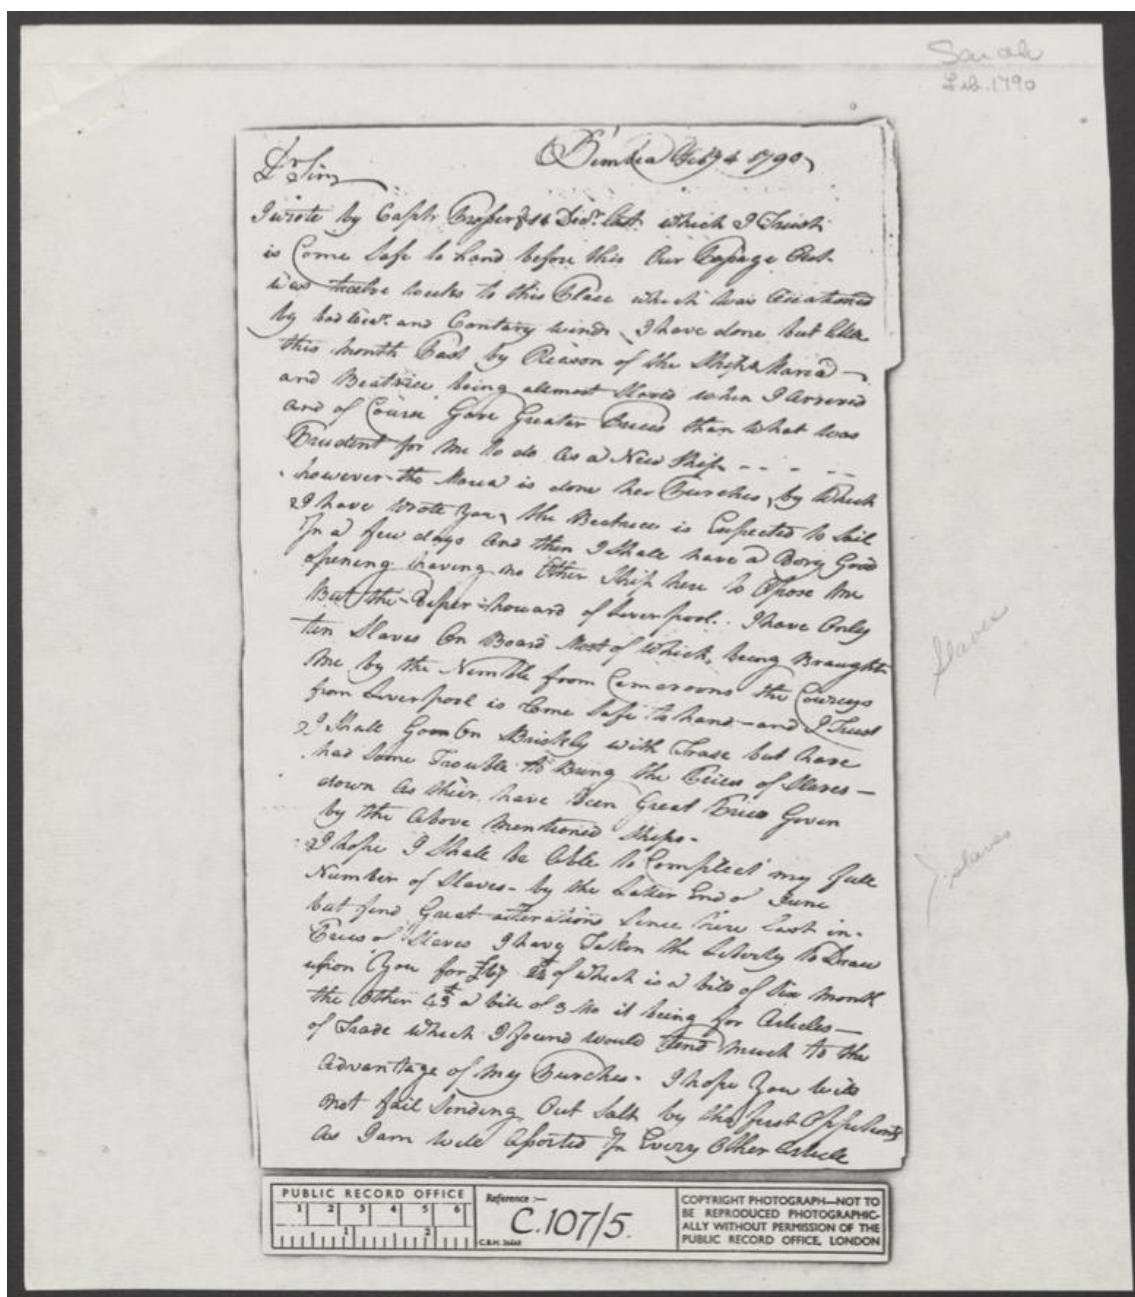 Sarah
Feb. 1790
Bimbia Feby 4 1790
Dr Sir
I wrote by Captn Decr last which I Trust
is Come Safe to hand before this Our Passage Out
was twelve weeks to this Place which was Occationed
by bad and Contary winds I have done but little
this month Past by Reason of the Ships Maria
and Beatrice being allmost Slaved when I Arrived
and of Course Gave Greater Prices than what was
Prudent for me to do As a New Ship - - - -
however the Maria is done her Purches, by which
I have wrote You, the Beatrice is Expected to Sail
In a few days And then I Shall have a Very Good
opening having no Other Ship here to Opose Me
But the howard of Liverpool. I have Only
ten Slaves On Board Most of which, being Braught
Me by the Nimble from Cameroons the Cowreys
from Liverpool is Come Safe to hand and I Trust
I Shall Goon On Briskly with Trade but have
had Some Trouble to Bring the Prices of Slaves
down As their have been Great Prices Given
by the Above Mentioned Ships
I hope I Shall be Able to Complect my full
Number of Slaves by the Latter End of June
but find Great alterations Since here Last in
Prices of Slaves I have Taken the Liberty to Draw
upon You for £67 of which is a bill of Six Month
the Other a bill of 3 Mo it being for Articles
of Trade which I found would tend much to the
Advantage of my Purches. I hope You will
not fail Sending Out Salt by the first
As I am well Asorted In Every Other Article
Slaves
slaves
PUBLIC RECORD OFFICE
1 2 3 4 5 6
1 2
Reference :—
C.107/5.
COPYRIGHT PHOTOGRAPH—NOT TO
BE REPRODUCED PHOTOGRAPHIC-
ALLY WITHOUT PERMISSION OF THE
PUBLIC RECORD OFFICE, LONDON